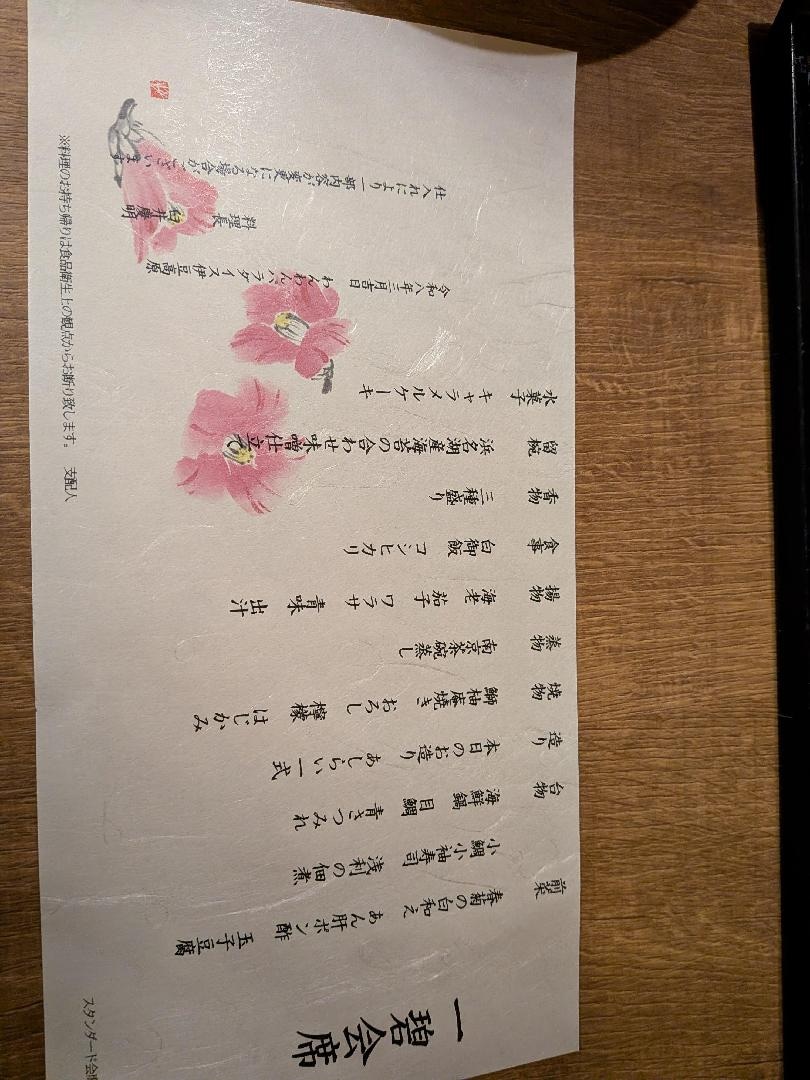 一碧会席
前菜
春菊の白和え　あん肝ポン酢　玉子豆腐
小鯛小袖寿司　浅利の佃煮
台物
海鮮鍋　目鯛　青さつみれ
造り
本日のお造り　あしらい一式
焼物
鰤柚庵焼き　おろし　檸檬　はじかみ
蒸物
南京茶碗蒸し
揚物
海老　茄子　ワラサ　青味　出汁
食事
白御飯　コシヒカリ
香物
三種盛り
留椀
浜名湖産海苔の合わせ味噌仕立て
水菓子
キャラメルケーキ
令和八年三月吉日
わんわんパラダイス伊豆高原
料理長　白井慶明
仕入れにより一部内容が変更になる場合がございます
※料理のお持ち帰りは食品衛生上の観点からお断り致します。　支配人
スタンダード会